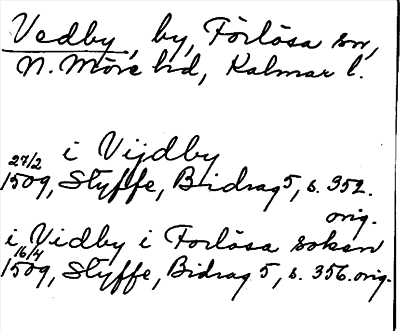 Vedby, by, Förlösa sn,
N. Möre hd, Kalmar l.
i Vijdby
27/2
1509, Styffe, Bidrag 5, s. 352.
orig.
i Vidby i Forlösa soken
16/4
1509, Styffe, Bidrag 5, s. 356. orig.